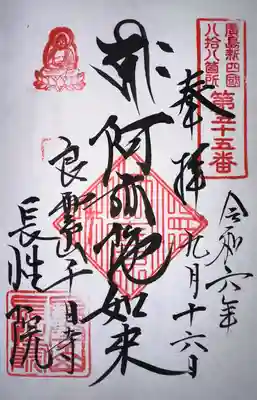 廣島新四國
八拾八箇所
第五十五番
奉拝
令和六年
九月十六日
阿弥陀如来
山千日寺
長性院